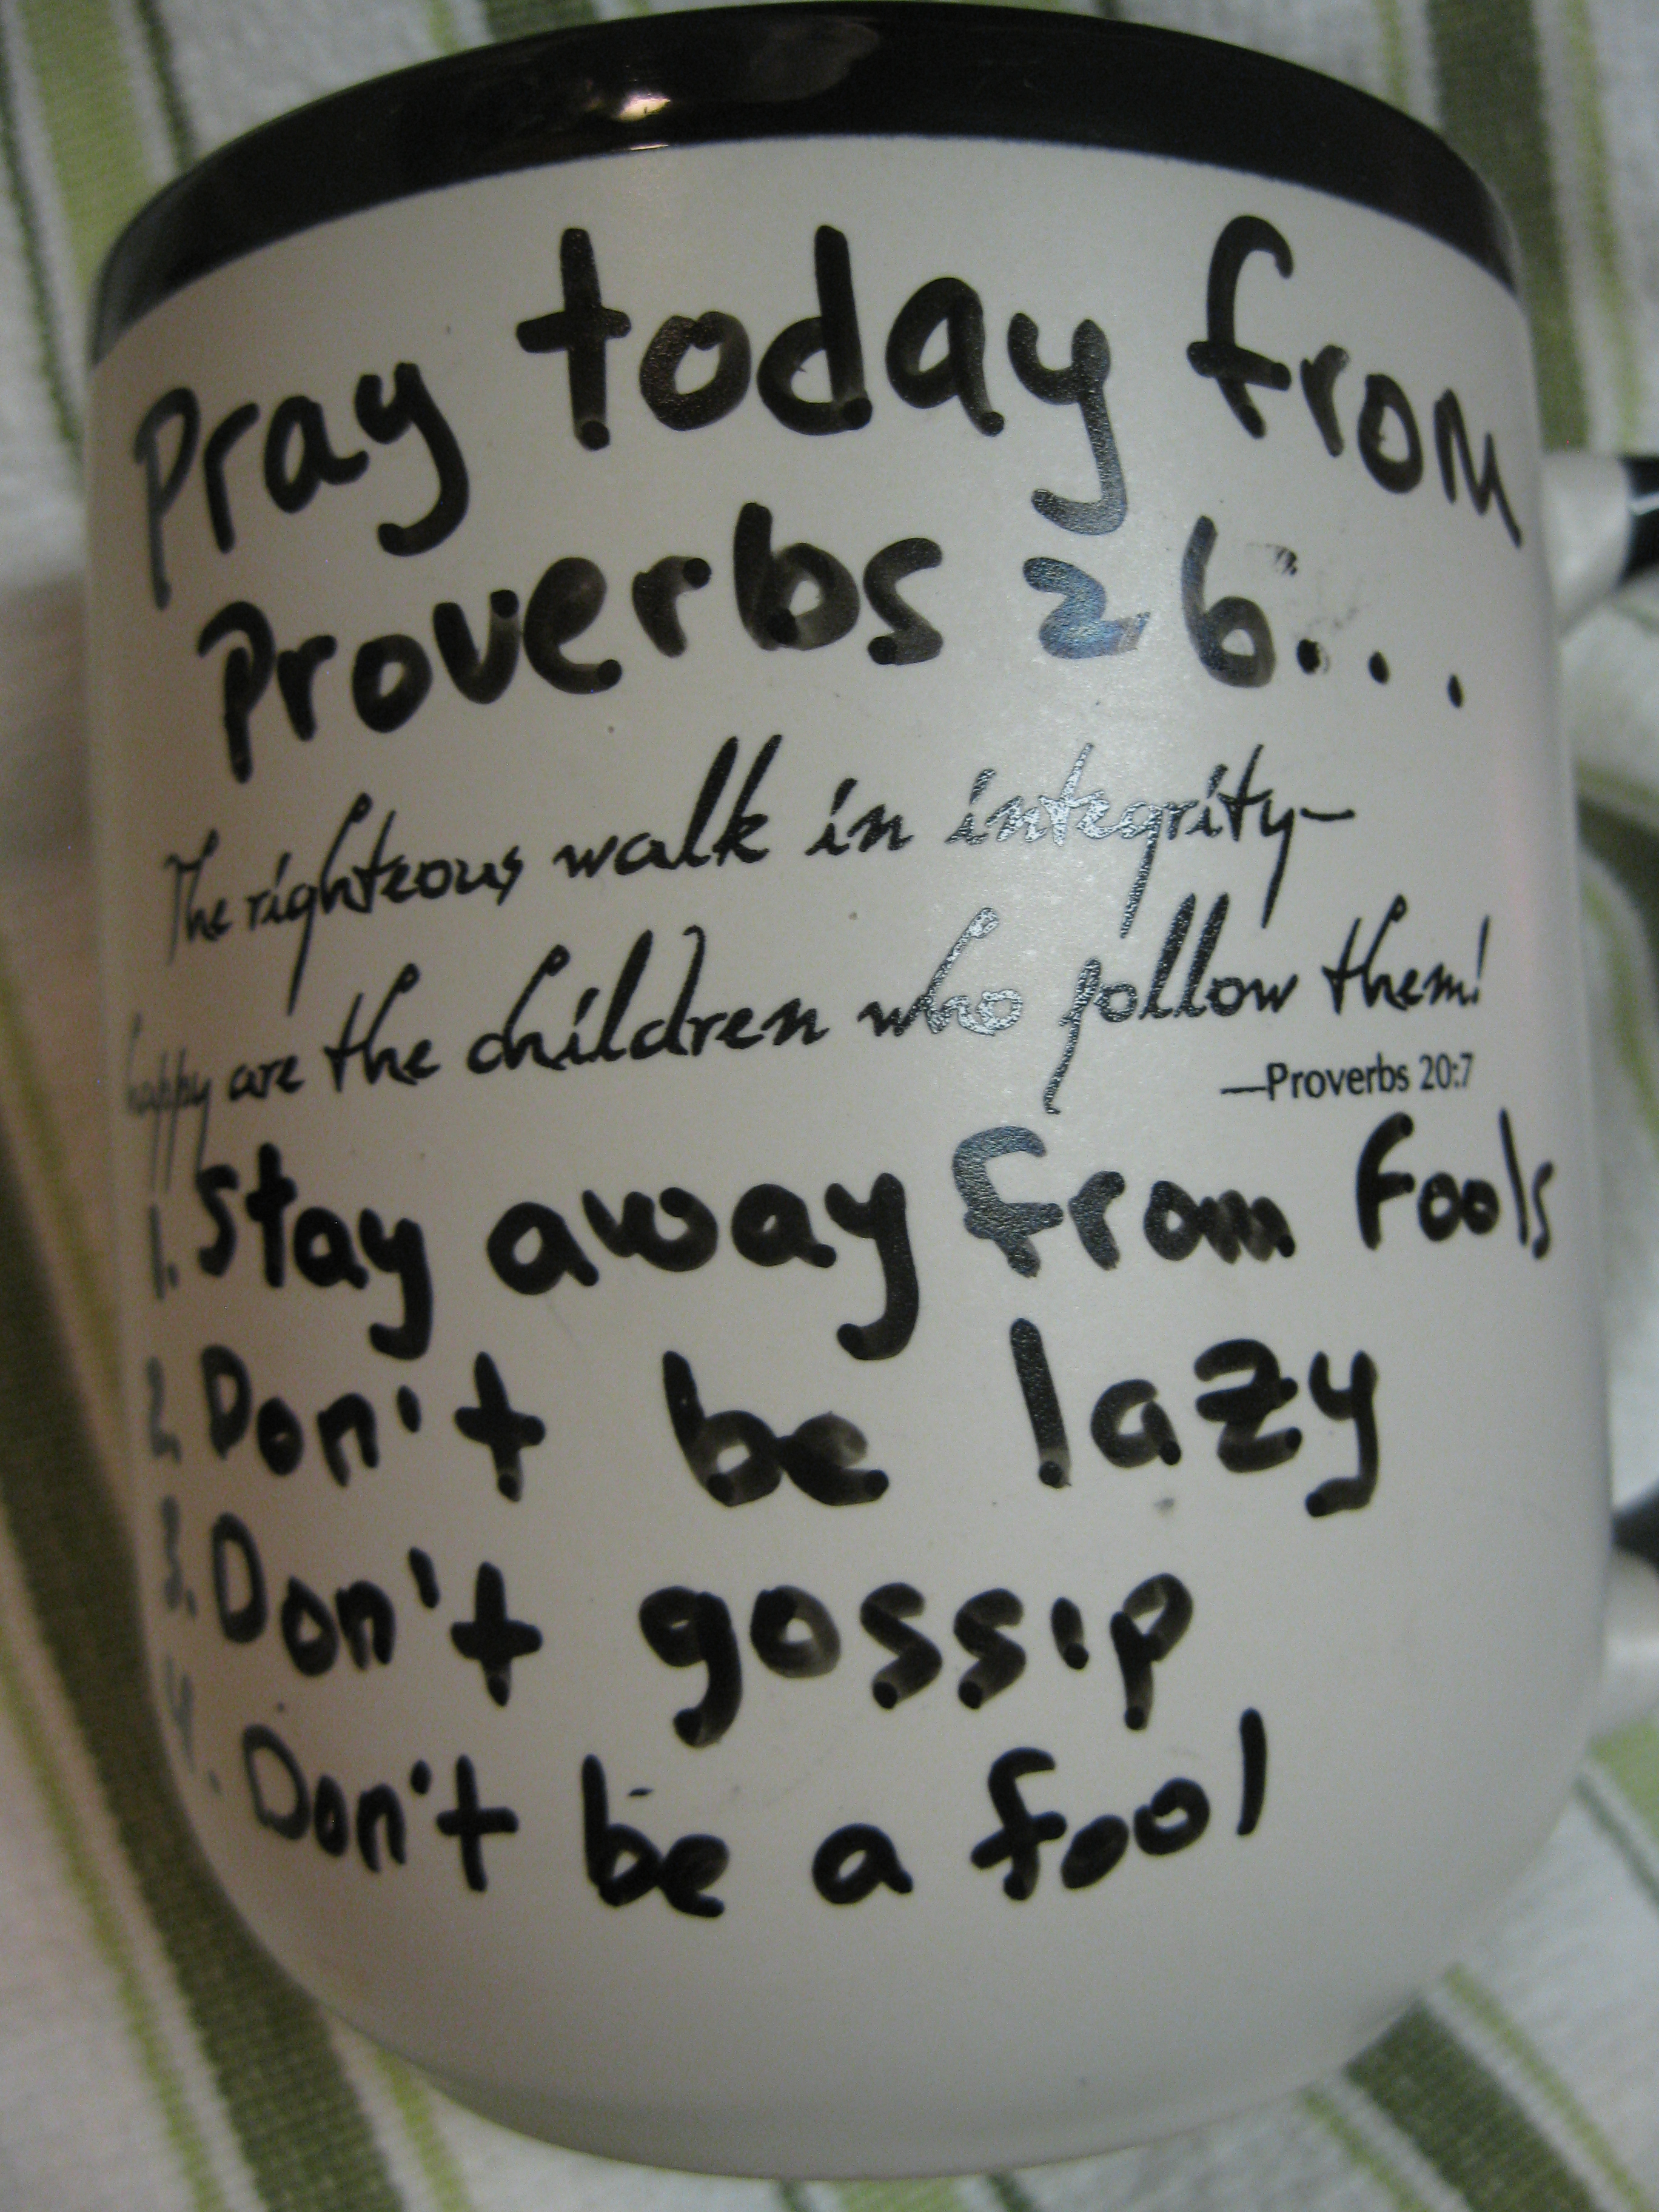 Pray today from
Proverbs 26...
The righteous walk in integrity—
happy are the children who follow them!
—Proverbs 20:7
1. Stay away from fools
2. Don't be lazy
3. Don't gossip
4. Don't be a fool